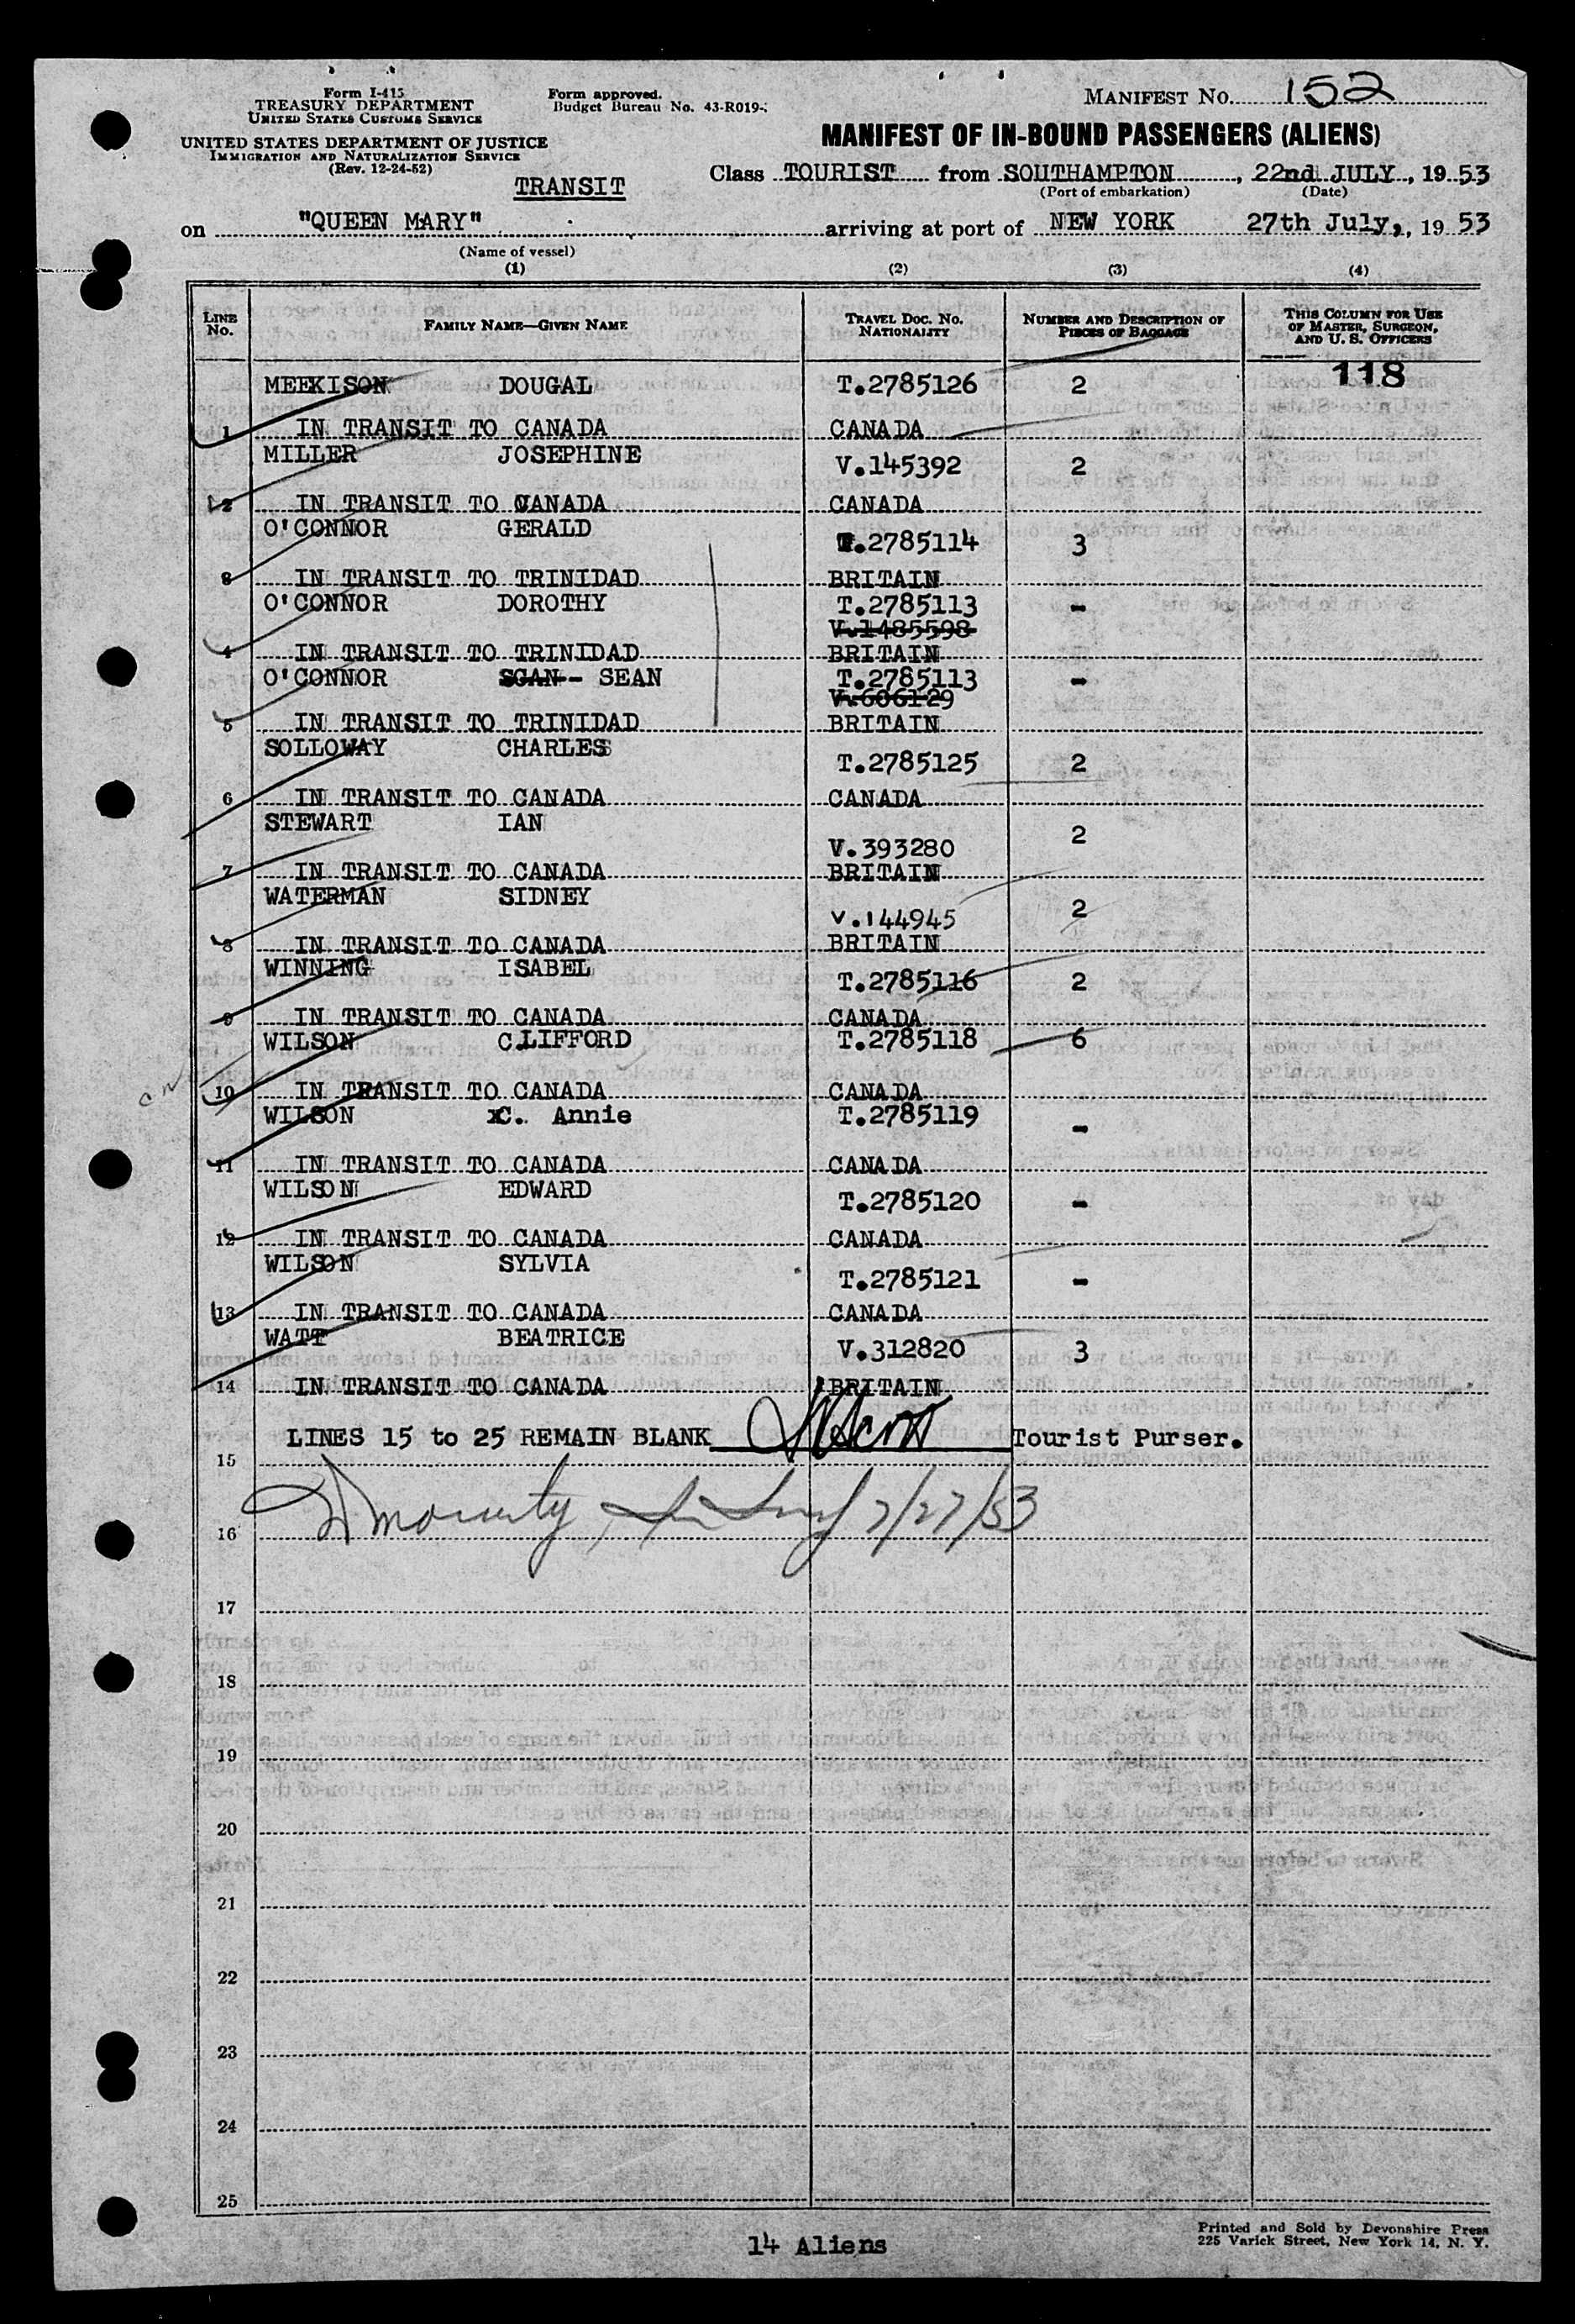 Form I-415
TREASURY DEPARTMENT
UNITED STATES CUSTOMS SERVICE
UNITED STATES DEPARTMENT OF JUSTICE
IMMIGRATION AND NATURALIZATION SERVICE
(Rev. 12-24-52)
Form approved.
Budget Bureau No. 43-R019-
MANIFEST NO. 152
MANIFEST OF IN-BOUND PASSENGERS (ALIENS)
TRANSIT
Class TOURIST from SOUTHAMPTON, 22nd JULY, 1953
(Port of embarkation) (Date)
on "QUEEN MARY" arriving at port of NEW YORK 27th July, 1953
(Name of vessel)
(1) (2) (3) (4)
LINE No. FAMILY NAME—GIVEN NAME TRAVEL DOC. NO. NATIONALITY NUMBER AND DESCRIPTION OF PIECES OF BAGGAGE THIS COLUMN FOR USE OF MASTER, SURGEON, AND U. S. OFFICERS
118
MEEKISON DOUGAL T.2785126 2
1 IN TRANSIT TO CANADA CANADA
MILLER JOSEPHINE V.145392 2
2 IN TRANSIT TO CANADA CANADA
O'CONNOR GERALD T.2785114 3
3 IN TRANSIT TO TRINIDAD BRITAIN
O'CONNOR DOROTHY T.2785113 -
V.1485598
4 IN TRANSIT TO TRINIDAD BRITAIN
O'CONNOR SGAN- SEAN T.2785113 -
V.606129
5 IN TRANSIT TO TRINIDAD BRITAIN
SOLLOWAY CHARLES T.2785125 2
6 IN TRANSIT TO CANADA CANADA
STEWART IAN V.393280 2
7 IN TRANSIT TO CANADA BRITAIN
WATERMAN SIDNEY V.144945 2
8 IN TRANSIT TO CANADA BRITAIN
WINNING ISABEL T.2785116 2
9 IN TRANSIT TO CANADA CANADA
WILSON C.LIFFORD T.2785118 6
10 IN TRANSIT TO CANADA CANADA
WILSON C. Annie T.2785119 -
11 IN TRANSIT TO CANADA CANADA
WILSON EDWARD T.2785120 -
12 IN TRANSIT TO CANADA CANADA
WILSON SYLVIA T.2785121 -
13 IN TRANSIT TO CANADA CANADA
WATT BEATRICE V.312820 3
14 IN TRANSIT TO CANADA BRITAIN
LINES 15 to 25 REMAIN BLANK Tourist Purser.
15
16 7/27/53
17
18
19
20
21
22
23
24
25
14 Aliens
Printed and Sold by Devonshire Press
225 Varick Street, New York 14, N. Y.